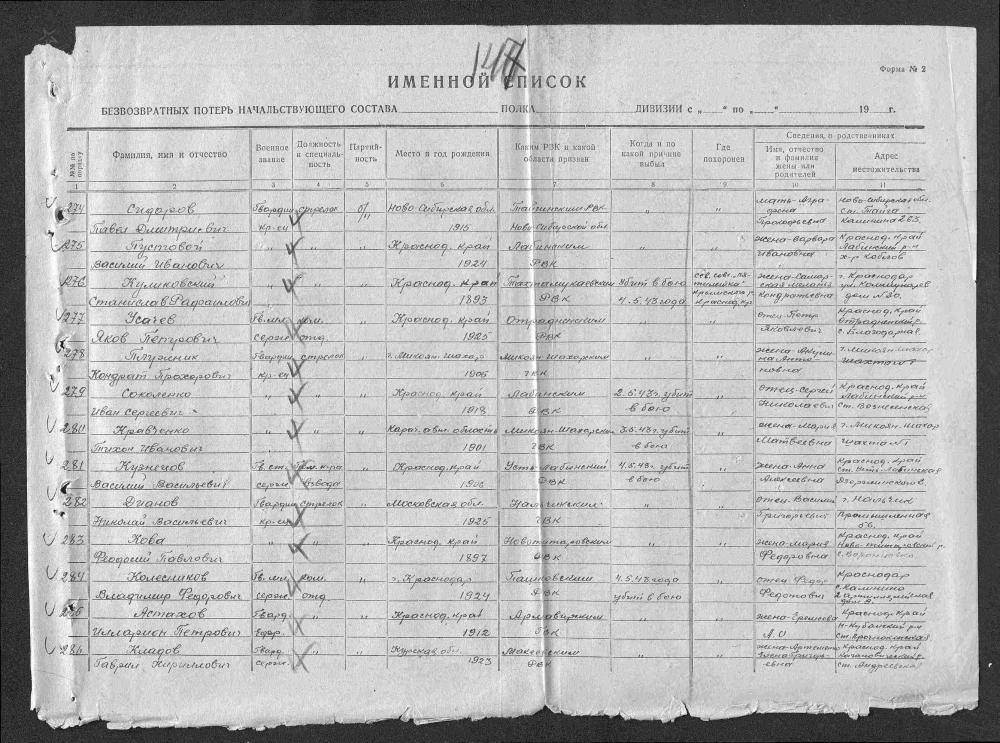 147
Форма № 2
ИМЕННОЙ СПИСОК
БЕЗВОЗВРАТНЫХ ПОТЕРЬ НАЧАЛЬСТВУЮЩЕГО СОСТАВА ПОЛКА ДИВИЗИИ с „ “ по „ “ 19 г.
№№ по порядку
Фамилия, имя и отчество
Военное звание
Должность и специальность
Партийность
Место и год рождения
Каким РВК и какой области призван
Когда и по какой причине выбыл
Где похоронен
Сведения о родственниках
Имя, отчество и фамилия жены или родителей
Адрес местожительства
1 2 3 4 5 6 7 8 9 10 11
274 Сидоров Гвардии стрелок б/п Ново-Сибирская обл. Тайгинским РВК „ „ мать-Агра- Ново-Сибирская обл.
фена ст. Тайга
Павел Дмитриевич кр-ец 1915 Ново-Сибирской обл Прокофьевна Калинина 263
275 Пустовой „ „ „ Краснод. край Лабинским „ „ жена-Варвара Краснод. край
Лабинский р-н
Василий Иванович 1924 РВК Ивановна х-р Кобло
276 Куликовский „ „ „ Краснод. край Тахтамукаевским убит в бою жена г. Краснодар
ул. Коммунаров
Станислав 1893 РВК 4.5.43 года Кондратьевна дом
277 Усачев Гв. мл. ком. „ Краснод. край Отрадненским „ „ отец Петр Краснод. край
Отрадненский р.
Яков Петрович серж отд. 1925 РВК Яковлевич с. Благодарное
278 Гвардии стрелок „ г. Микоян Шахар Микоян Шахарским „ „ жена г. Микоян Шахар
Кондрат Прохорович кр-ец 1906 ГВК новна
279 Соколенко „ „ „ Краснод. край Лабинским 2.5.43 г. убит „ отец-Сергей Краснод. край
Лабинский р-н
Иван Сергеевич 1918 РВК в бою Николаевич ст. Вознесенская
280 Кравченко „ „ „ Карач. авт. область Микоян-Шахарским 3.5.43г убит „ жена-Мария г. Микоян-Шахар
Тихон Иванович 1901 ГВК в бою Матвеевна шахта №1
281 Кузнецов Гв. ст. пом. к-ра „ Краснод. край Усть-Лабинский 4.5.43г. убит „ жена-Анна Краснод. край
ст. Усть-Лабинская
Василий Васильевич серж взвода 1906 РВК в бою Алексеевна
282 Дианов Гвардии стрелок „ Московская обл. Нальчикским „ „ отец Василий г. Нальчик
Николай Васильевич кр-ец 1925 ГВК Григорьевич Промышленная
283 Кова „ „ „ Краснод. край Новотитаровским „ „ жена-Мария Краснод. край
Ново-титаровский р.
Феодосий Павлович 1897 РВК Федоровна с. Воронцовка
284 Колесников Гв. мл. ком. „ г. Краснодар Пашковским 4.5.43 года „ отец Федор Краснодар
с. Калинино
Владимир Федорович серж отд 1924 РВК убит в бою Федотович
285 Астахов Гвард. „ „ Краснод. край Армавирским „ „ жена Краснод. край
Н-Кубанский р-н
Илларион Петрович Ефр. 1912 ГВК ст. Прочноокопская
286 Кладов Гвард. „ „ Курская обл. Макеевским „ „ жена Краснод. край
Гаврил Кириллович серж. 1923 РВК евна ст. Андреевская